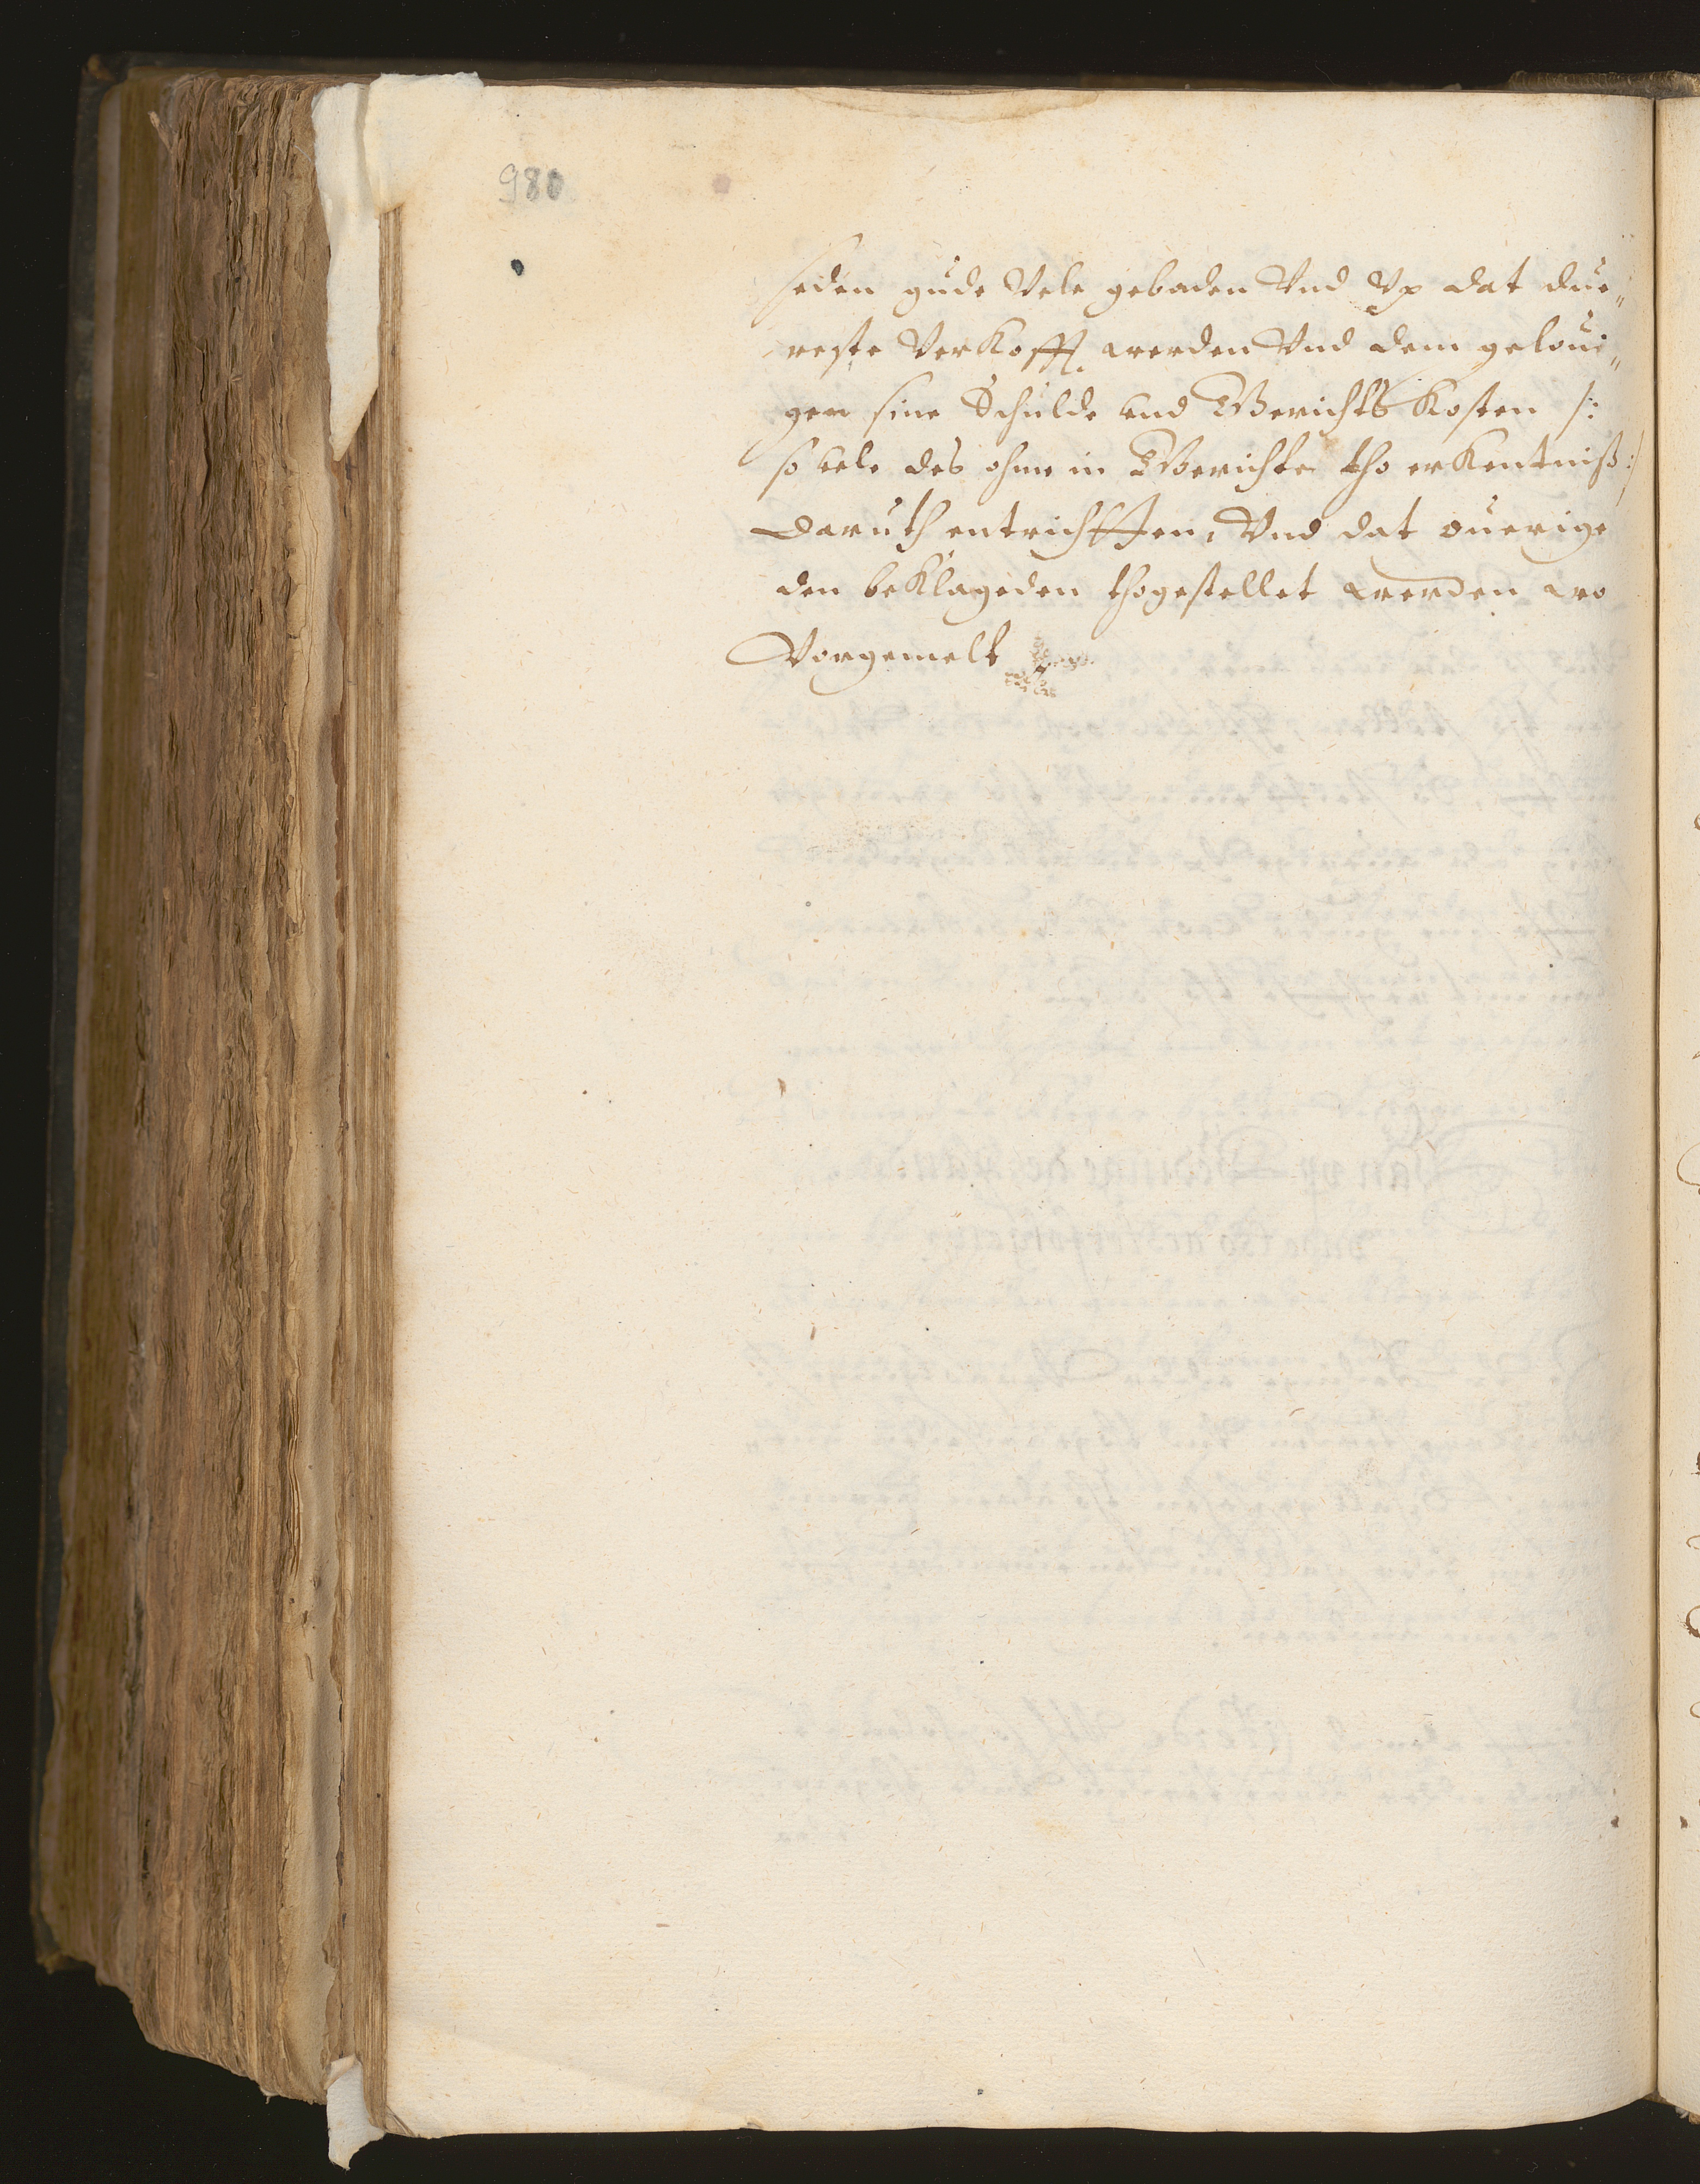 980
seden gude Vele gebaden Vnd Vp dat due„
reste Verkofft werden Vnd dem geloui„
gen sine Schulde vnd Gerichts Kosten /:
so vele des ohme in Gerichte tho erkentniß :/
daruth entrichtten, Vnd dat ouerige
den beklageden thogestellet werden wo
Vorgemelt